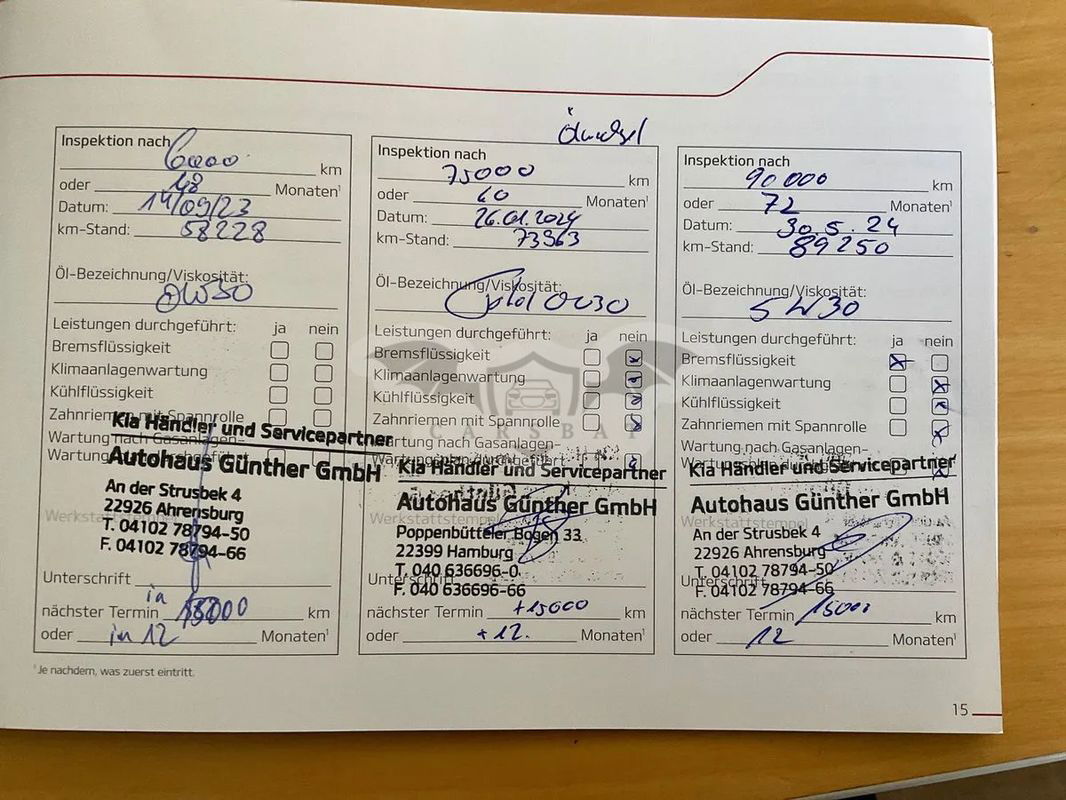 Inspektion nach 6000 km
oder 48 Monaten¹
Datum: 14/09/23
km-Stand: 58228
Öl-Bezeichnung/Viskosität:
0W30
Leistungen durchgeführt: ja nein
Bremsflüssigkeit
Klimaanlagenwartung
Kühlflüssigkeit
Zahnriemen mit Spannrolle
Wartung nach Gasanlagen-
Kia Händler und Servicepartner
Autohaus Günther GmbH
An der Strusbek 4
22926 Ahrensburg
T. 04102 78794-50
F. 04102 78794-66
Werkstattstempel
Unterschrift
nächster Termin in 15000 km
oder in 12 Monaten¹
Inspektion nach 75000 km
oder 60 Monaten¹
Datum: 26.01.2024
km-Stand: 73963
Öl-Bezeichnung/Viskosität:
0W30
Leistungen durchgeführt: ja nein
Bremsflüssigkeit
Klimaanlagenwartung
Kühlflüssigkeit
Zahnriemen mit Spannrolle
Wartung nach Gasanlagen-
Kia Händler und Servicepartner
Autohaus Günther GmbH
Werkstattstempel
Poppenbütteler Bogen 33
22399 Hamburg
T. 040 636696-0
Unterschrift
F. 040 636696-66
nächster Termin +15000 km
oder +12. Monaten¹
Inspektion nach 90 000 km
oder 72 Monaten¹
Datum: 30.5.24
km-Stand: 89250
Öl-Bezeichnung/Viskosität:
5W30
Leistungen durchgeführt: ja nein
Bremsflüssigkeit
Klimaanlagenwartung
Kühlflüssigkeit
Zahnriemen mit Spannrolle
Wartung nach Gasanlagen-
Kia Händler und Servicepartner
Autohaus Günther GmbH
Werkstattstempel
An der Strusbek 4
22926 Ahrensburg
T. 04102 78794-50
Unterschrift
F. 04102 78794-66
nächster Termin 15000 km
oder 12 Monaten¹
¹Je nachdem, was zuerst eintritt.
15
CARSBAT